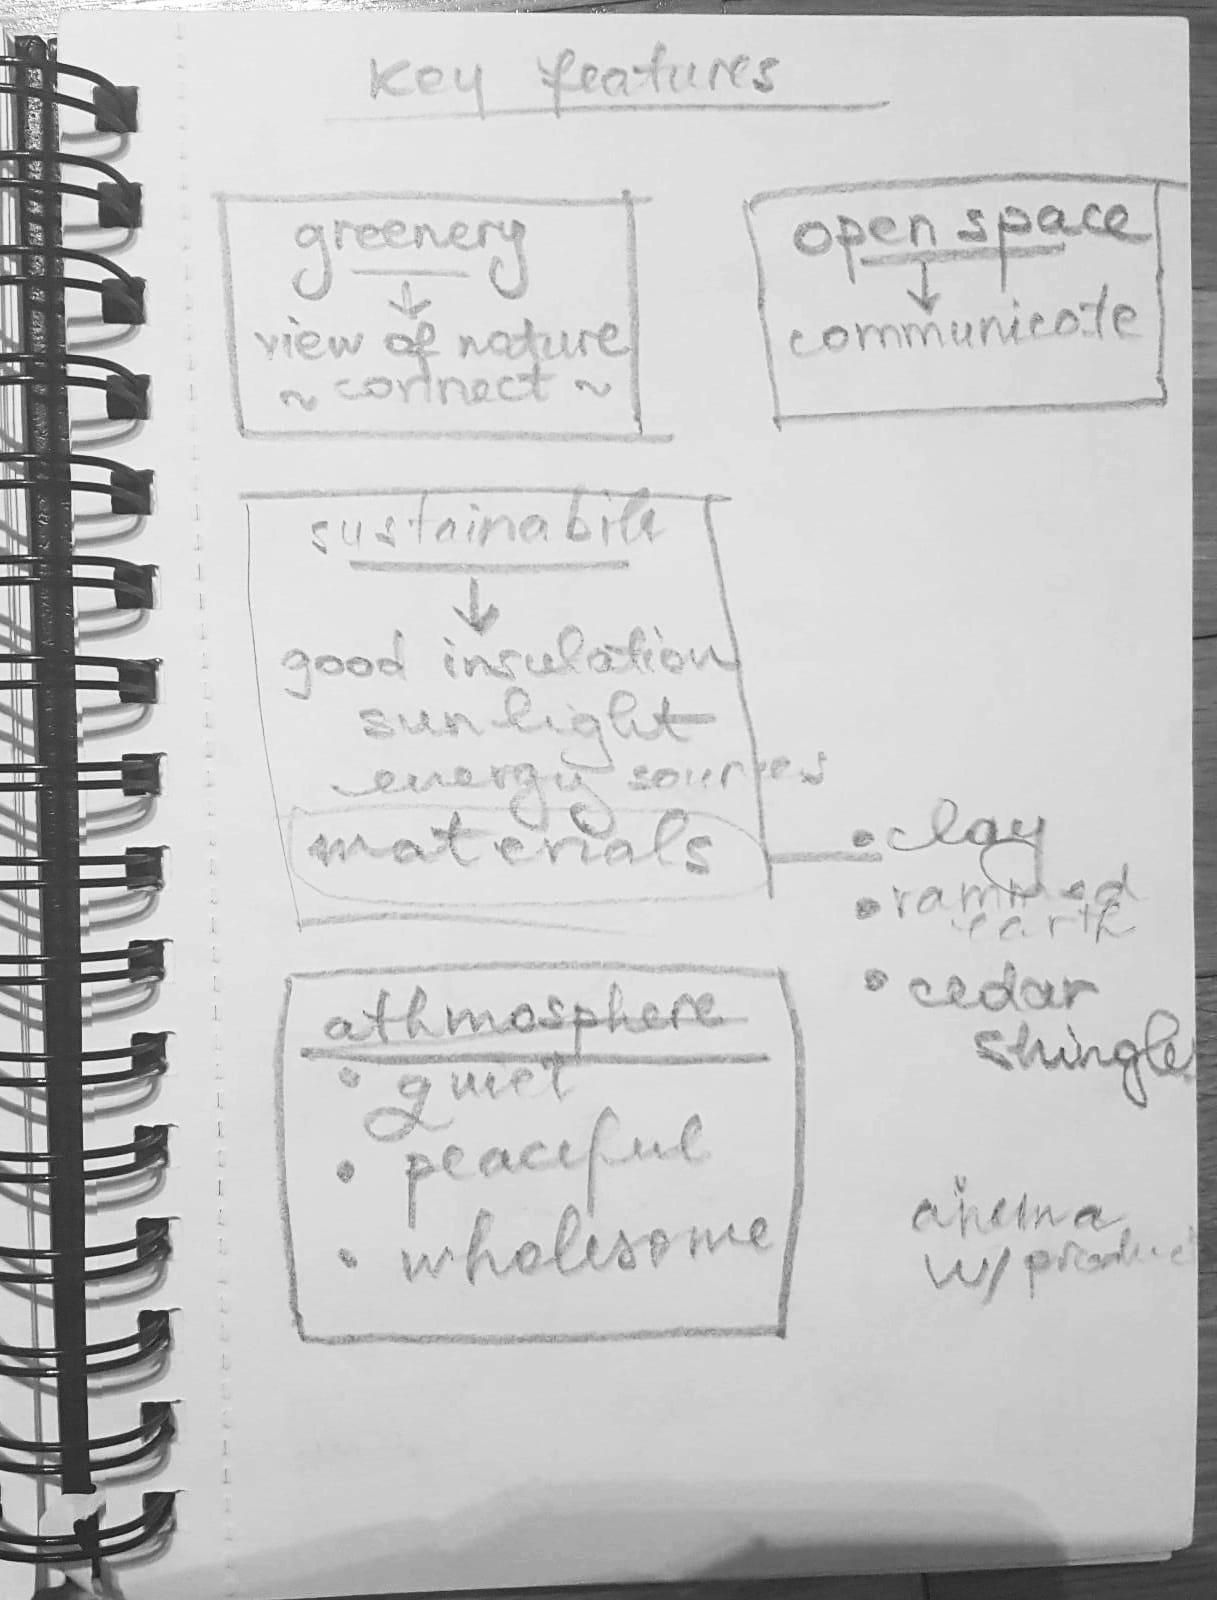 Key features
greenery
↓
view of nature
~ connect ~
open space
↓
communicate
sustainabili
↓
good insulation
sunlight
energy sources
materials
• clay
• rammed
earth
• cedar
shingle
athmosphere
• quiet
• peaceful
• wholesome
w/ produc